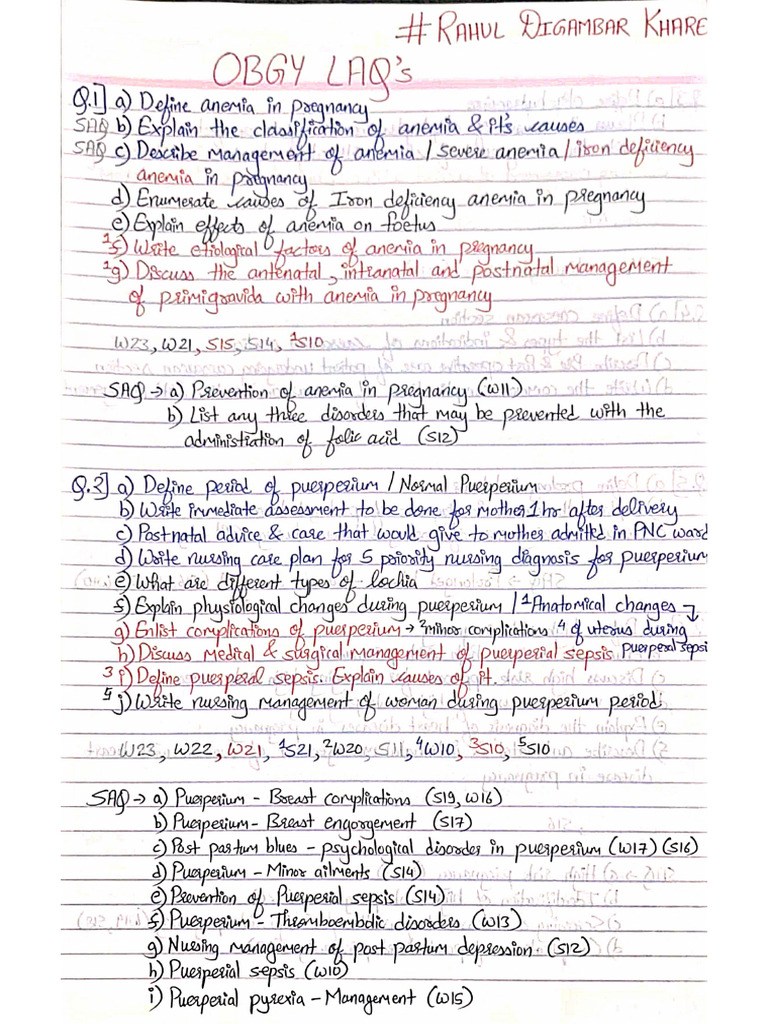 # RAHUL DIGAMBAR KHARE
OBGY LAQ's
Q.1] a) Define anemia in pregnancy
SAQ b) Explain the classification of anemia & it's causes
SAQ c) Describe management of anemia / severe anemia / iron deficiency
anemia in pregnancy
d) Enumerate causes of Iron deficiency anemia in pregnancy
e) Explain effects of anemia on foetus
1 f) Write etiological factors of anemia in pregnancy
1 g) Discuss the antenatal, intranatal and postnatal management
of primigravida with anemia in pregnancy
W23, W21, S15, S14, 1S10
SAQ → a) Prevention of anemia in pregnancy (W11)
b) List any three disorders that may be prevented with the
administration of folic acid (S12)
Q.2] a) Define period of puerperium / Normal Puerperium
b) Write immediate assessment to be done for mother 1 hr after delivery
c) Postnatal advice & care that would give to mother admitted in PNC ward
d) Write nursing care plan for 5 priority nursing diagnosis for puerperium
e) What are different types of lochia
f) Explain physiological changes during puerperium / 1Anatomical changes
g) Enlist complications of puerperium → 2minor complications 4 of uterus during
h) Discuss Medical & surgical management of puerperial sepsis puerperal sepsi
3 i) Define puerperal sepsis. Explain causes of it.
5 j) Write nursing management of woman during puerperium period.
W23, W22, W21, 1S21, 2W20, S11, 4W10, 3S10, 5S10
SAQ → a) Puerperium - Breast complications (S19, W16)
b) Puerperium - Breast engorgement (S17)
c) Post partum blues - psychological disorder in puerperium (W17) (S16)
d) Puerperium - Minor ailments (S14)
e) Prevention of Puerperial sepsis (S14)
f) Puerperium - Thromboembolic disorders (W13)
g) Nursing management of post partum depression. (S12)
h) Puerperial sepsis (W10)
i) Puerperial pyrexia - Management (W15)